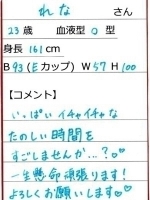 れな さん
23歳 血液型 O 型
身長 161cm
B93(Eカップ) W57 H100
【コメント】
いっぱいイチャイチャな
たのしい時間を
すごしませんか…?♡♡
一生懸命頑張ります!
よろしくお願いします♡♡